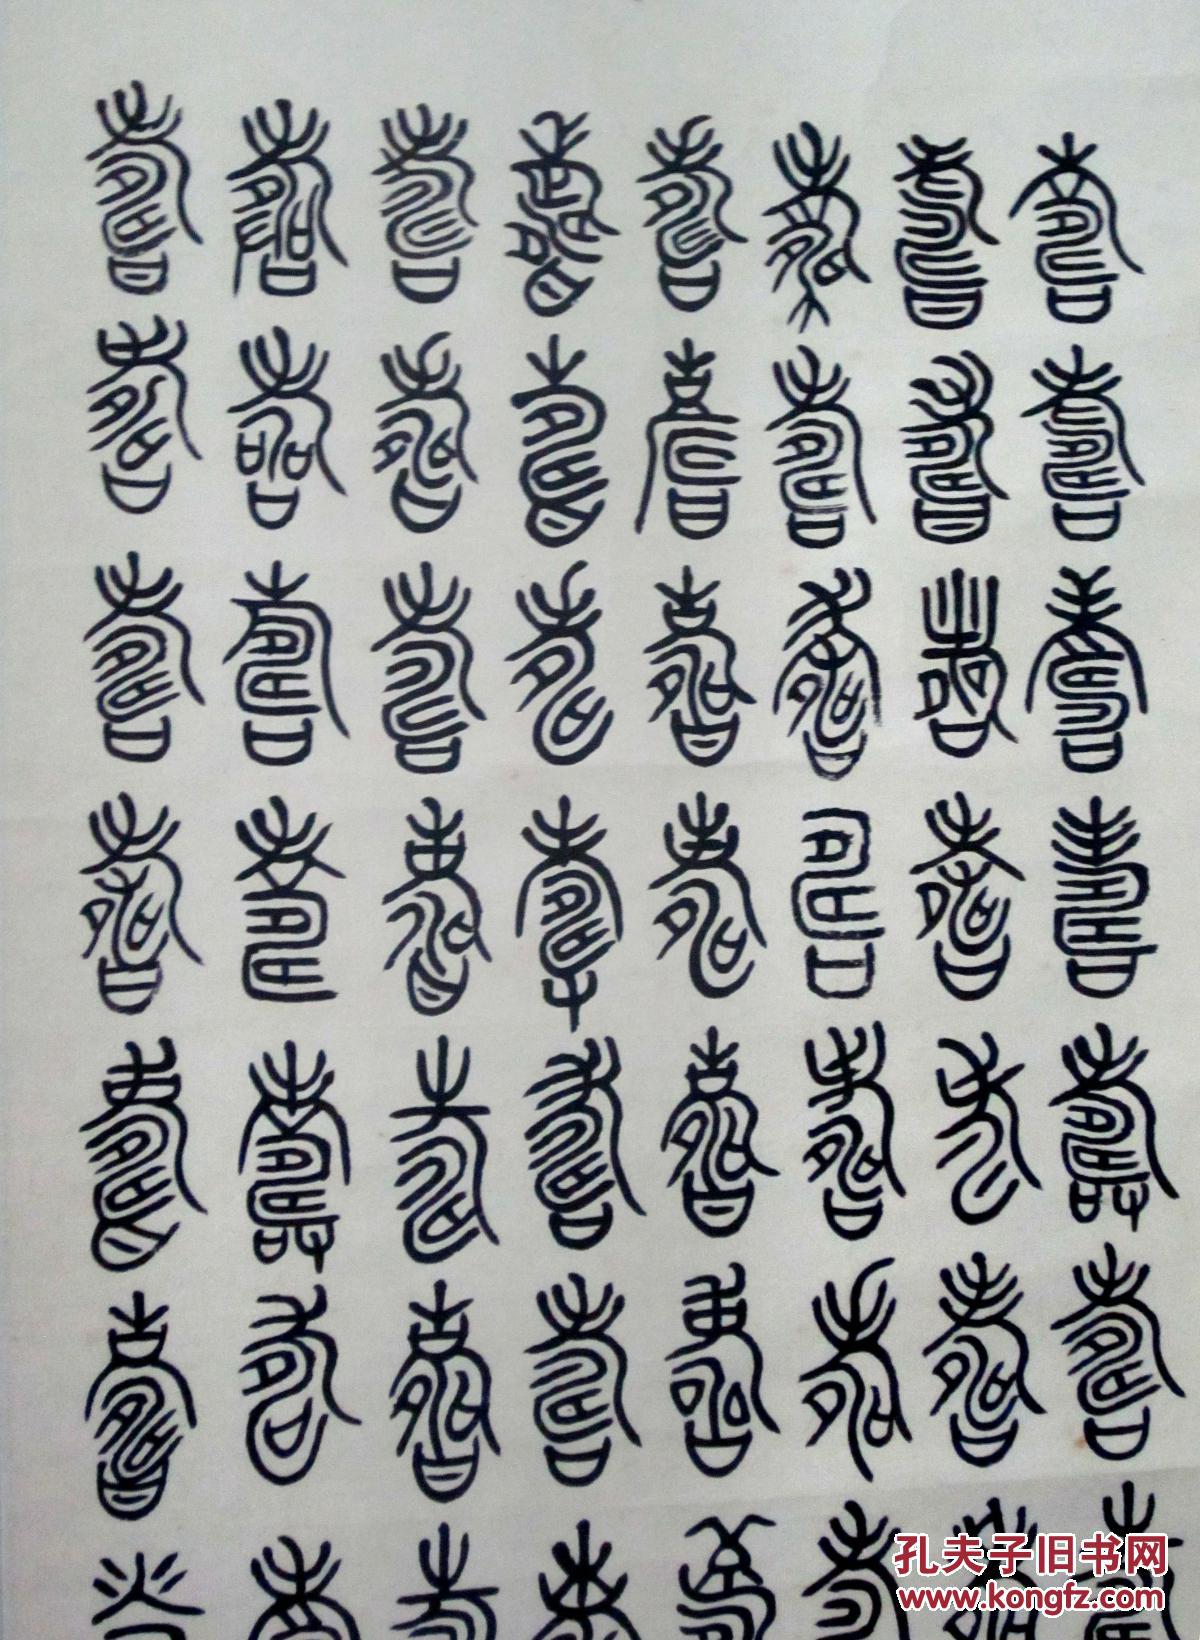 壽壽壽壽壽壽
壽壽壽壽壽壽
壽壽壽壽壽壽
壽壽壽壽壽壽
壽壽壽壽壽壽
壽壽壽壽壽壽
壽壽壽壽壽壽
壽壽壽壽壽壽
孔夫子旧书网
www.kongfz.com